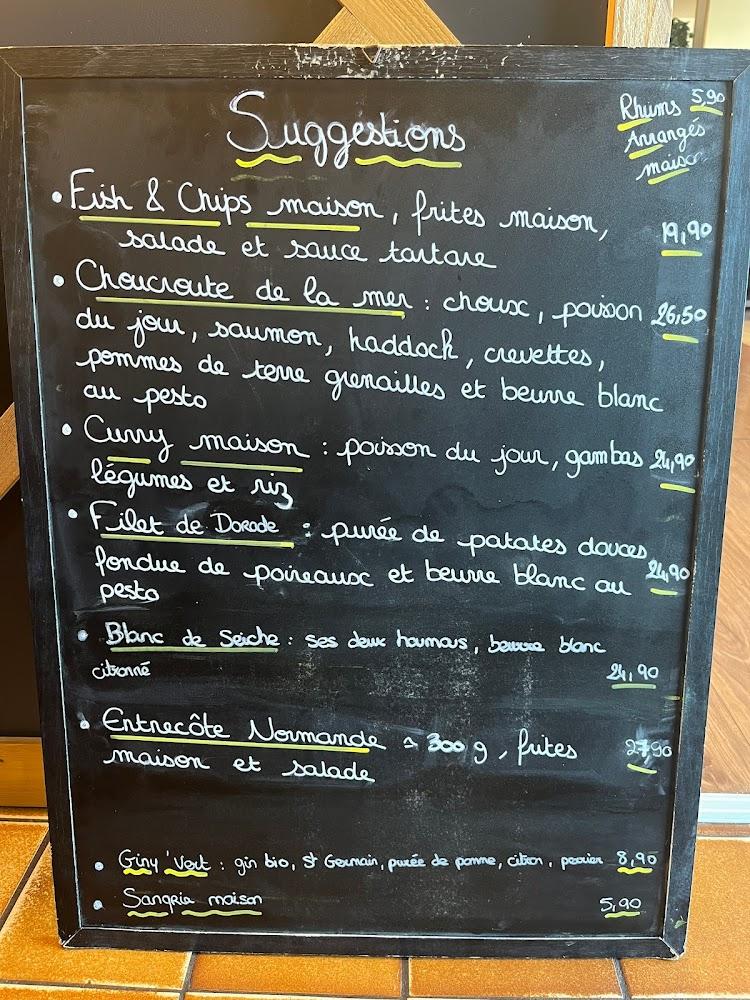 Suggestions
Rhums 5,90
Arrangés
maison
• Fish & Chips maison, frites maison,
salade et sauce tartare 19,90
• Choucroute de la mer : choux, poisson 26,50
du jour, saumon, haddock, crevettes,
pommes de terre grenailles et beurre blanc
au pesto
• Curry maison : poisson du jour, gambas 24,90
légumes et riz
• Filet de Dorade : purée de patates douces,
fondue de poireaux et beurre blanc au 24,90
pesto
• Blanc de Seiche : ses deux houmous, beurre blanc
citronné 24,90
• Entrecôte Normande ≃ 300 g, frites 27,90
maison et salade
• Giny'Vert : gin bio, St Germain, purée de pomme, citron, perrier 8,90
• Sangria maison 5,90